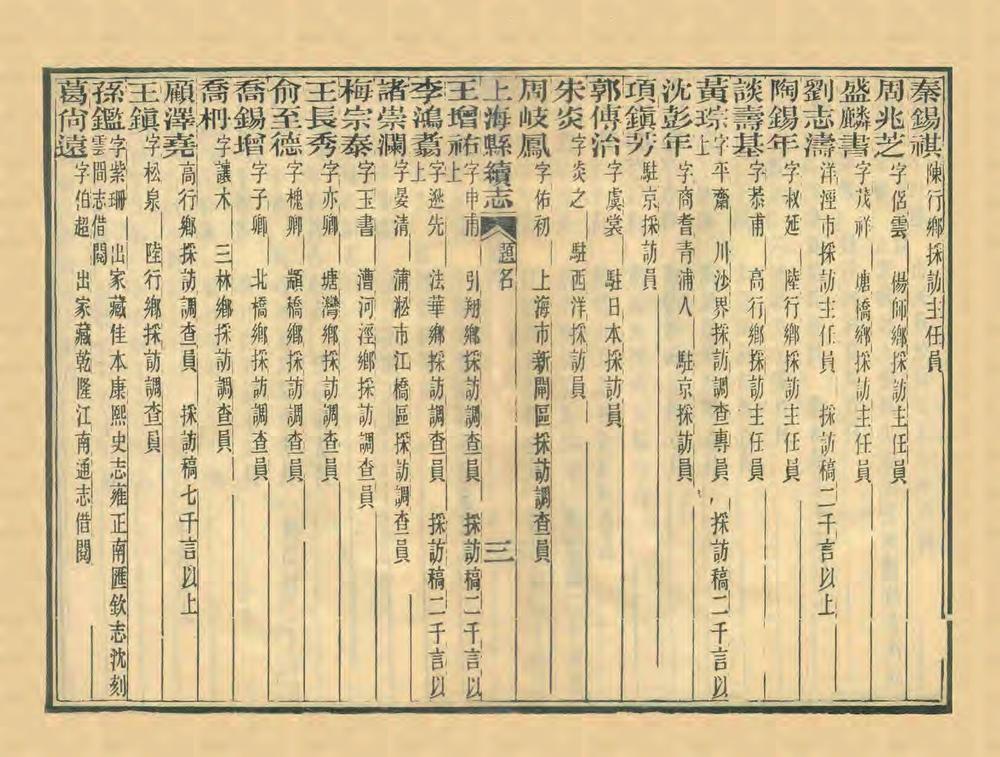 秦錫祺 陳行鄉採訪主任員
周兆芝 字侶雲 楊師鄉採訪主任員
盛麟書 字茂祥 塘橋鄉採訪主任員
劉志濤 洋涇市採訪主任員 採訪稿二千言以上
陶錫年 字叔延 陸行鄉採訪主任員
談壽基 字恭甫 高行鄉採訪主任員
黃琮 字平齋 川沙界採訪調查專員 採訪稿二千言以上
沈彭年 字商耆青浦人 駐京採訪員
項鎮芳 駐京採訪員
郭傳治 字虞裳 駐日本採訪員
朱炎 字炎之 駐西洋採訪員
周岐鳳 字佑初 上海市新閘區採訪調查員
上海縣續志 題名 三
王增祐 字申甫 引翔鄉採訪調查員 採訪稿二千言以上
李鴻翥 字遜先 法華鄉採訪調查員 採訪稿二千言以上
諸崇瀾 字晏清 蒲淞市江橋區採訪調查員
梅宗泰 字玉書 漕河涇鄉採訪調查員
王長秀 字亦卿 塘灣鄉採訪調查員
俞至德 字槐卿 顓橋鄉採訪調查員
喬錫增 字子卿 北橋鄉採訪調查員
喬枬 字讓木 三林鄉採訪調查員
顧澤堯 高行鄉採訪調查員 採訪稿七千言以上
王鎮 字松泉 陸行鄉採訪調查員
孫鑑 字紫珊 出家藏佳本康熙史志雍正南匯欽志沈刻雲間志借閱
葛尚遠 字伯超 出家藏乾隆江南通志借閱